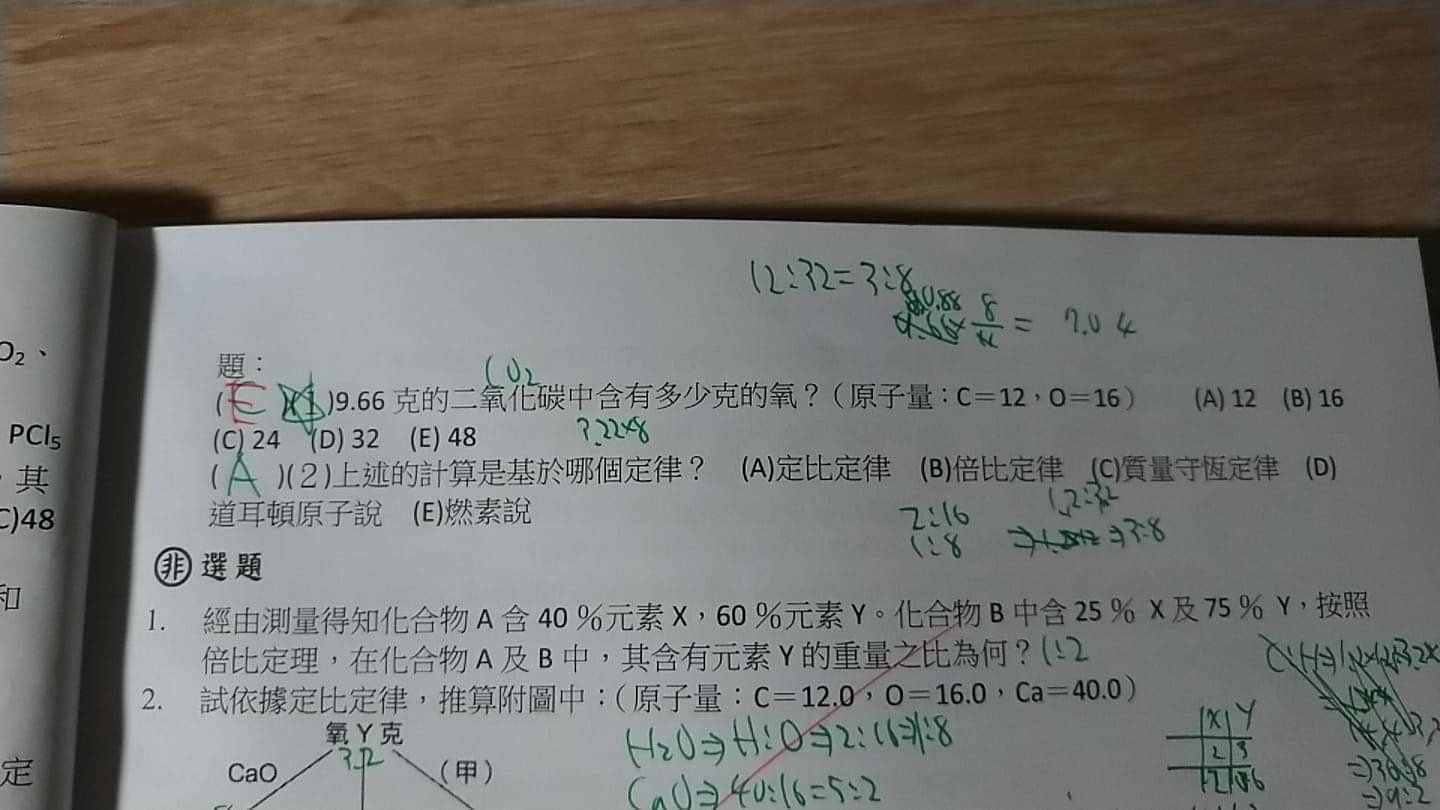 12:32=3:8
0.88
8
= 7.04
O₂、
題：
CO₂
(E )9.66 克的二氧化碳中含有多少克的氧？（原子量：C＝12，O＝16） (A) 12 (B) 16
(C) 24 (D) 32 (E) 48
3.22×8
PCl₅
( A )(2)上述的計算是基於哪個定律？ (A)定比定律 (B)倍比定律 (C)質量守恆定律 (D)
，其
道耳頓原子說 (E)燃素說
C)48
12:32
2:16
1:8
⇒3:8
㊣非 選題
和
1. 經由測量得知化合物 A 含 40 %元素 X，60 %元素 Y。化合物 B 中含 25 % X 及 75 % Y，按照
倍比定理，在化合物 A 及 B 中，其含有元素 Y 的重量之比為何？1:2
2. 試依據定比定律，推算附圖中：（原子量：C＝12.0，O＝16.0，Ca＝40.0）
氧 Y 克
3.2
H₂O⇒H:O⇒2:16⇒1:8
X Y
定
CaO （甲）
CaO⇒40:16=5:2
2 3
⇒9:2